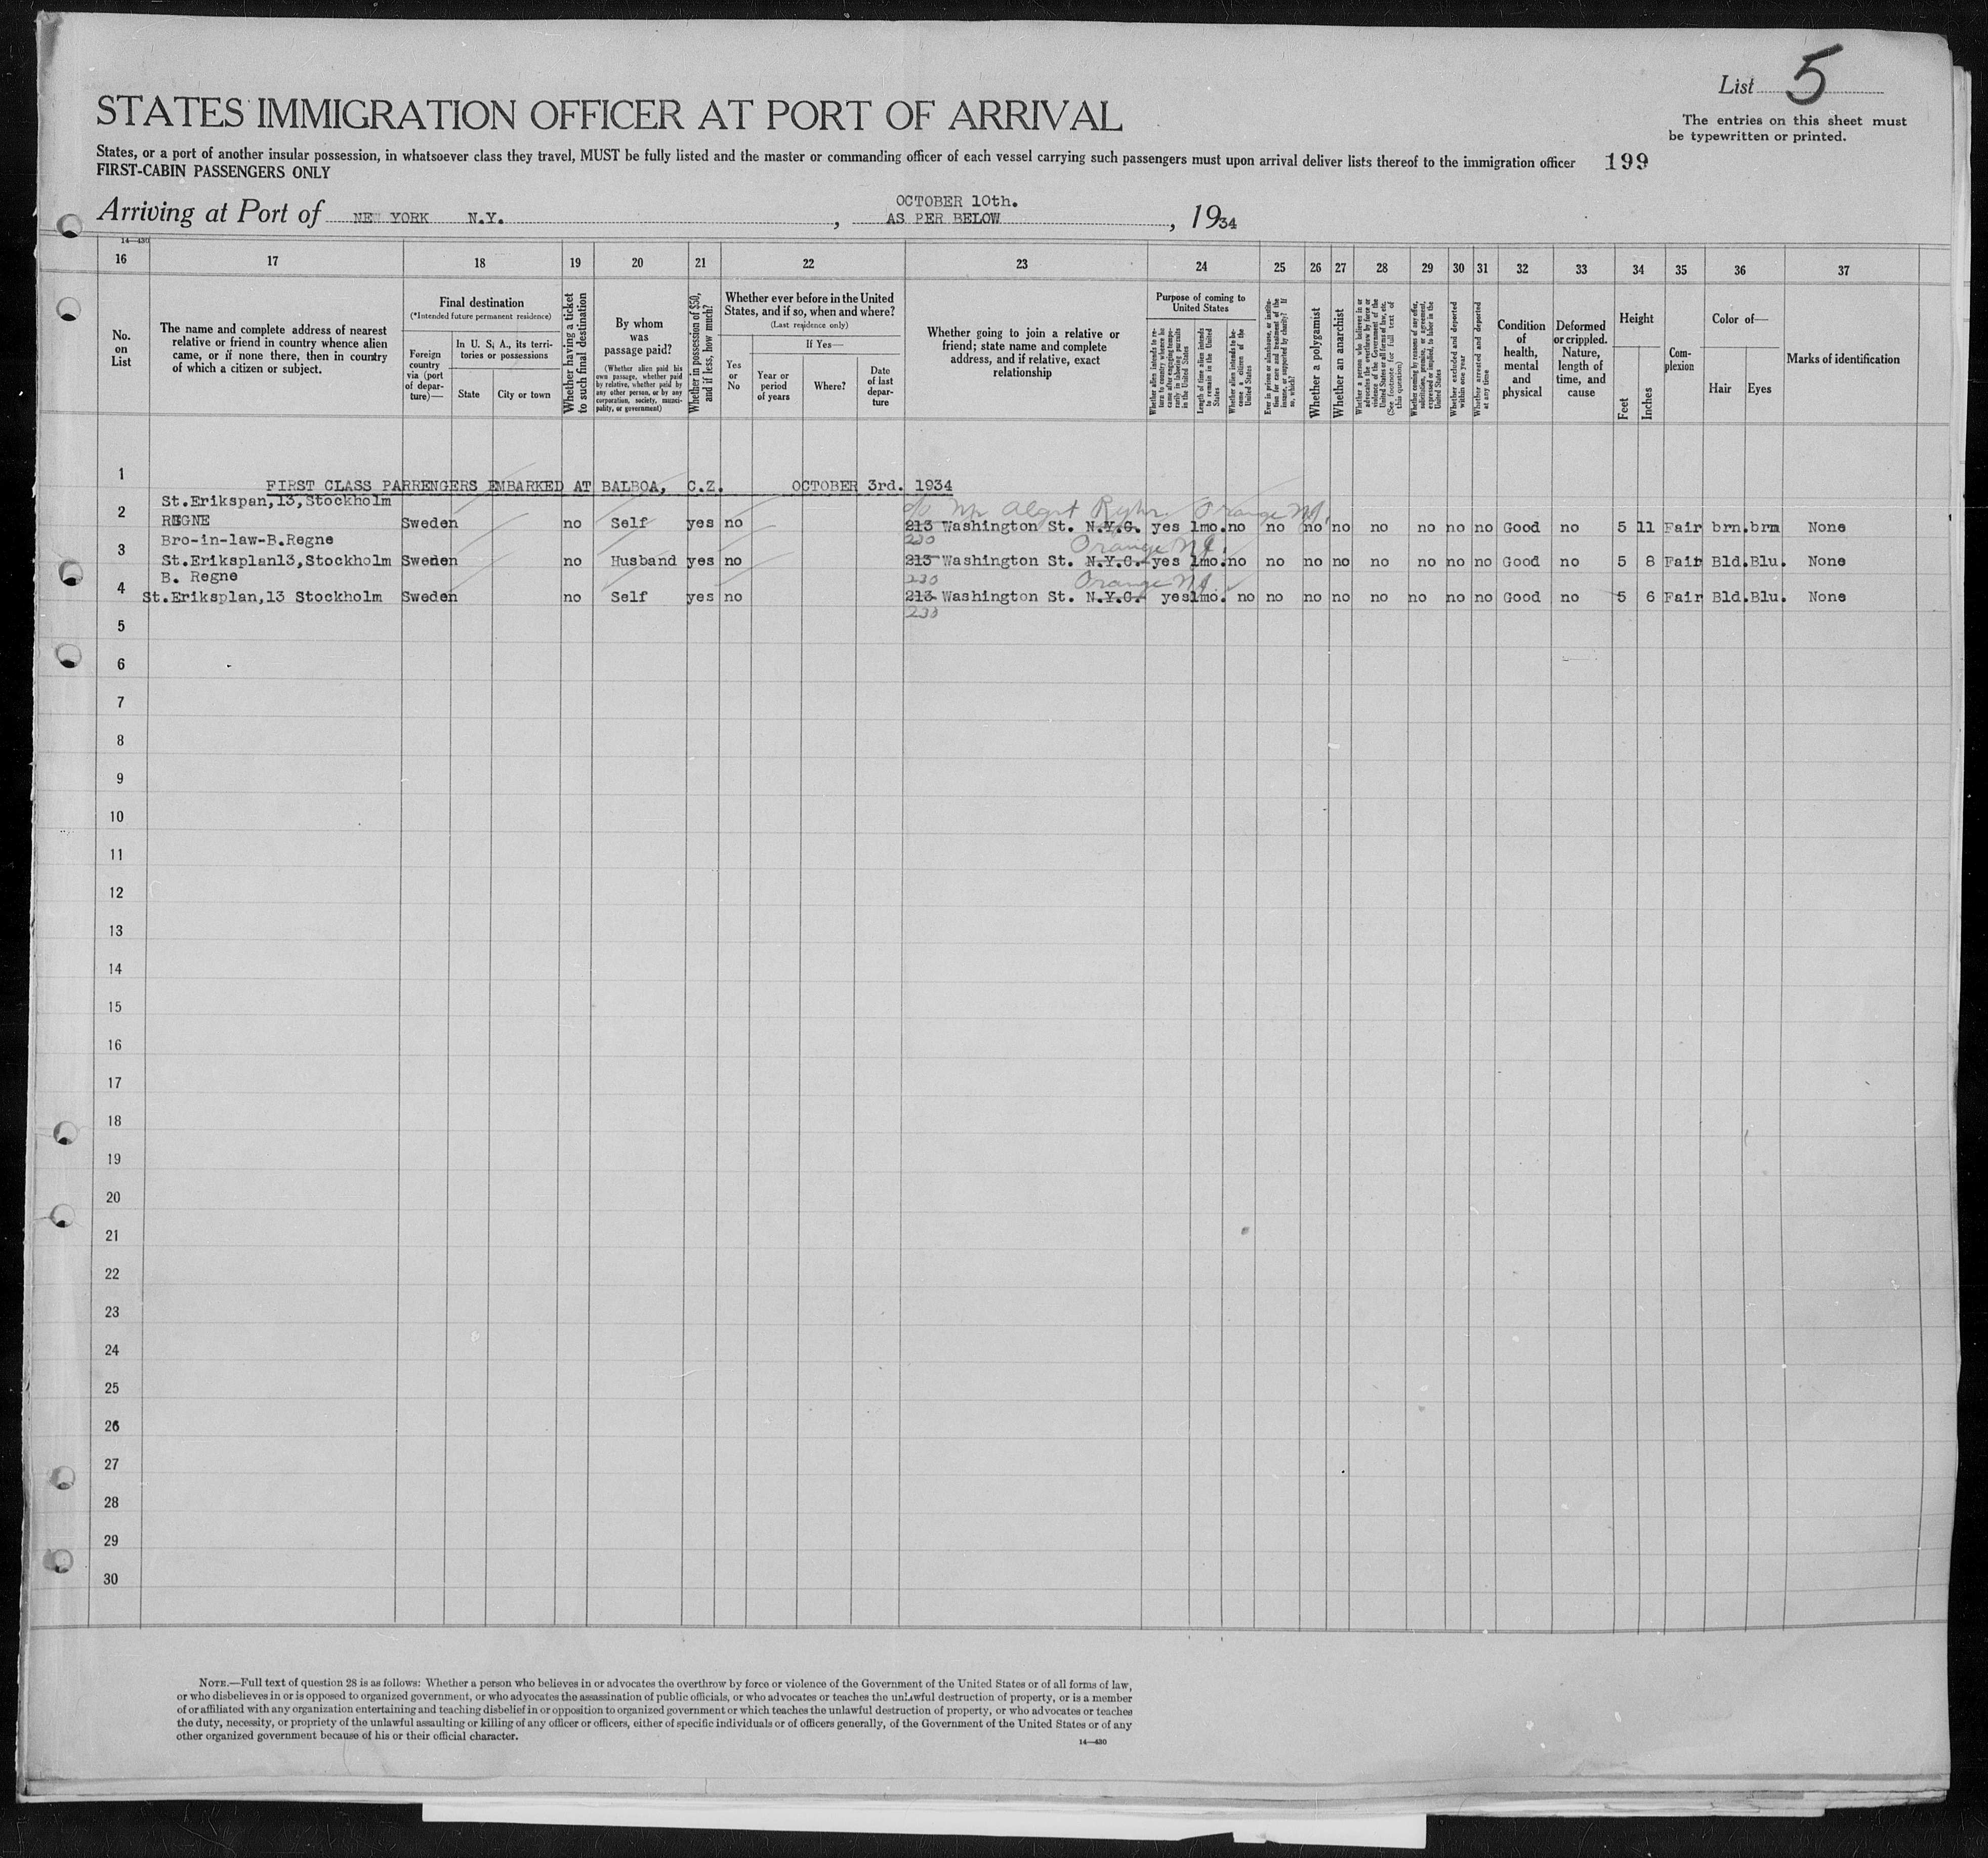 List 5
STATES IMMIGRATION OFFICER AT PORT OF ARRIVAL
The entries on this sheet must
be typewritten or printed.
States, or a port of another insular possession, in whatsoever class they travel, MUST be fully listed and the master or commanding officer of each vessel carrying such passengers must upon arrival deliver lists thereof to the immigration officer 199
FIRST-CABIN PASSENGERS ONLY
OCTOBER 10th.
Arriving at Port of NEW YORK N.Y. , AS PER BELOW , 1934
14—430
16 17 18 19 20 21 22 23 24 25 26 27 28 29 30 31 32 33 34 35 36 37
No. on List
The name and complete address of nearest relative or friend in country whence alien came, or if none there, then in country of which a citizen or subject.
Final destination
(*Intended future permanent residence)
Foreign country via (port of departure)—
In U. S. A., its territories or possessions
State
City or town
Whether having a ticket to such final destination
By whom was passage paid?
(Whether alien paid his own passage, whether paid by relative, whether paid by any other person, or by any corporation, society, municipality, or government)
Whether in possession of $50, and if less, how much?
Whether ever before in the United States, and if so, when and where?
(Last residence only)
If Yes—
Yes or No
Year or period of years
Where?
Date of last departure
Whether going to join a relative or friend; state name and complete address, and if relative, exact relationship
Purpose of coming to United States
Whether alien intends to return to country whence he came after engaging temporarily in laboring pursuits in the United States
Length of time alien intends to remain in the United States
Whether alien intends to become a citizen of the United States
Ever in prison or almshouse, or institution for care and treatment of the insane, or supported by charity? If so, which?
Whether a polygamist
Whether an anarchist
Whether a person who believes in or advocates the overthrow by force or violence of the Government of the United States or all forms of law, etc. (See footnote for full text of this question)
Whether coming by reasons of any offer, solicitation, promise, or agreement, expressed or implied, to labor in the United States
Whether excluded and deported within one year
Whether arrested and deported at any time
Condition of health, mental and physical
Deformed or crippled. Nature, length of time, and cause
Height
Feet
Inches
Complexion
Color of—
Hair
Eyes
Marks of identification
1
FIRST CLASS PARRENGERS EMBARKED AT BALBOA, C.Z. OCTOBER 3rd. 1934
St.Erikspan,13,Stockholm
c/o Mr Orange NJ.
2 REGNE Sweden no Self yes no 213 Washington St. N.Y.C. yes 1mo. no no no no no no no no Good no 5 11 Fair brn. brn None
Bro-in-law-B.Regne 230 Orange NJ.
3 St.Eriksplan13,Stockholm Sweden no Husband yes no 213 Washington St. N.Y.C. yes 1mo. no no no no no no no no Good no 5 8 Fair Bld. Blu. None
B. Regne 230 Orange NJ.
4 St.Eriksplan,13 Stockholm Sweden no Self yes no 213 Washington St. N.Y.C. yes 1mo. no no no no no no no no Good no 5 6 Fair Bld. Blu. None
230
5
6
7
8
9
10
11
12
13
14
15
16
17
18
19
20
21
22
23
24
25
26
27
28
29
30
NOTE.—Full text of question 28 is as follows: Whether a person who believes in or advocates the overthrow by force or violence of the Government of the United States or of all forms of law,
or who disbelieves in or is opposed to organized government, or who advocates the assassination of public officials, or who advocates or teaches the unlawful destruction of property, or is a member
of or affiliated with any organization entertaining and teaching disbelief in or opposition to organized government or which teaches the unlawful destruction of property, or who advocates or teaches
the duty, necessity, or propriety of the unlawful assaulting or killing of any officer or officers, either of specific individuals or of officers generally, of the Government of the United States or of any
other organized government because of his or their official character.
14—430